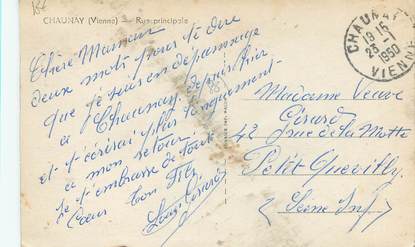 CHAUNAY (Vienne) — Rue principale
Chère Maman
deux mots pour te dire
que je suis en dépannage
a Chaunay depuis hier
et t'écrirai plus longuement
a mon retour
je t'embrasse de tout
Cœur Ton Fils
Louis Gérard
CHAUNAY
19 15
23 -1
1950
VIENNE
Madame Veuve
Gérard
42 rue de la Motte
Petit Quevilly
(Seine Inf)